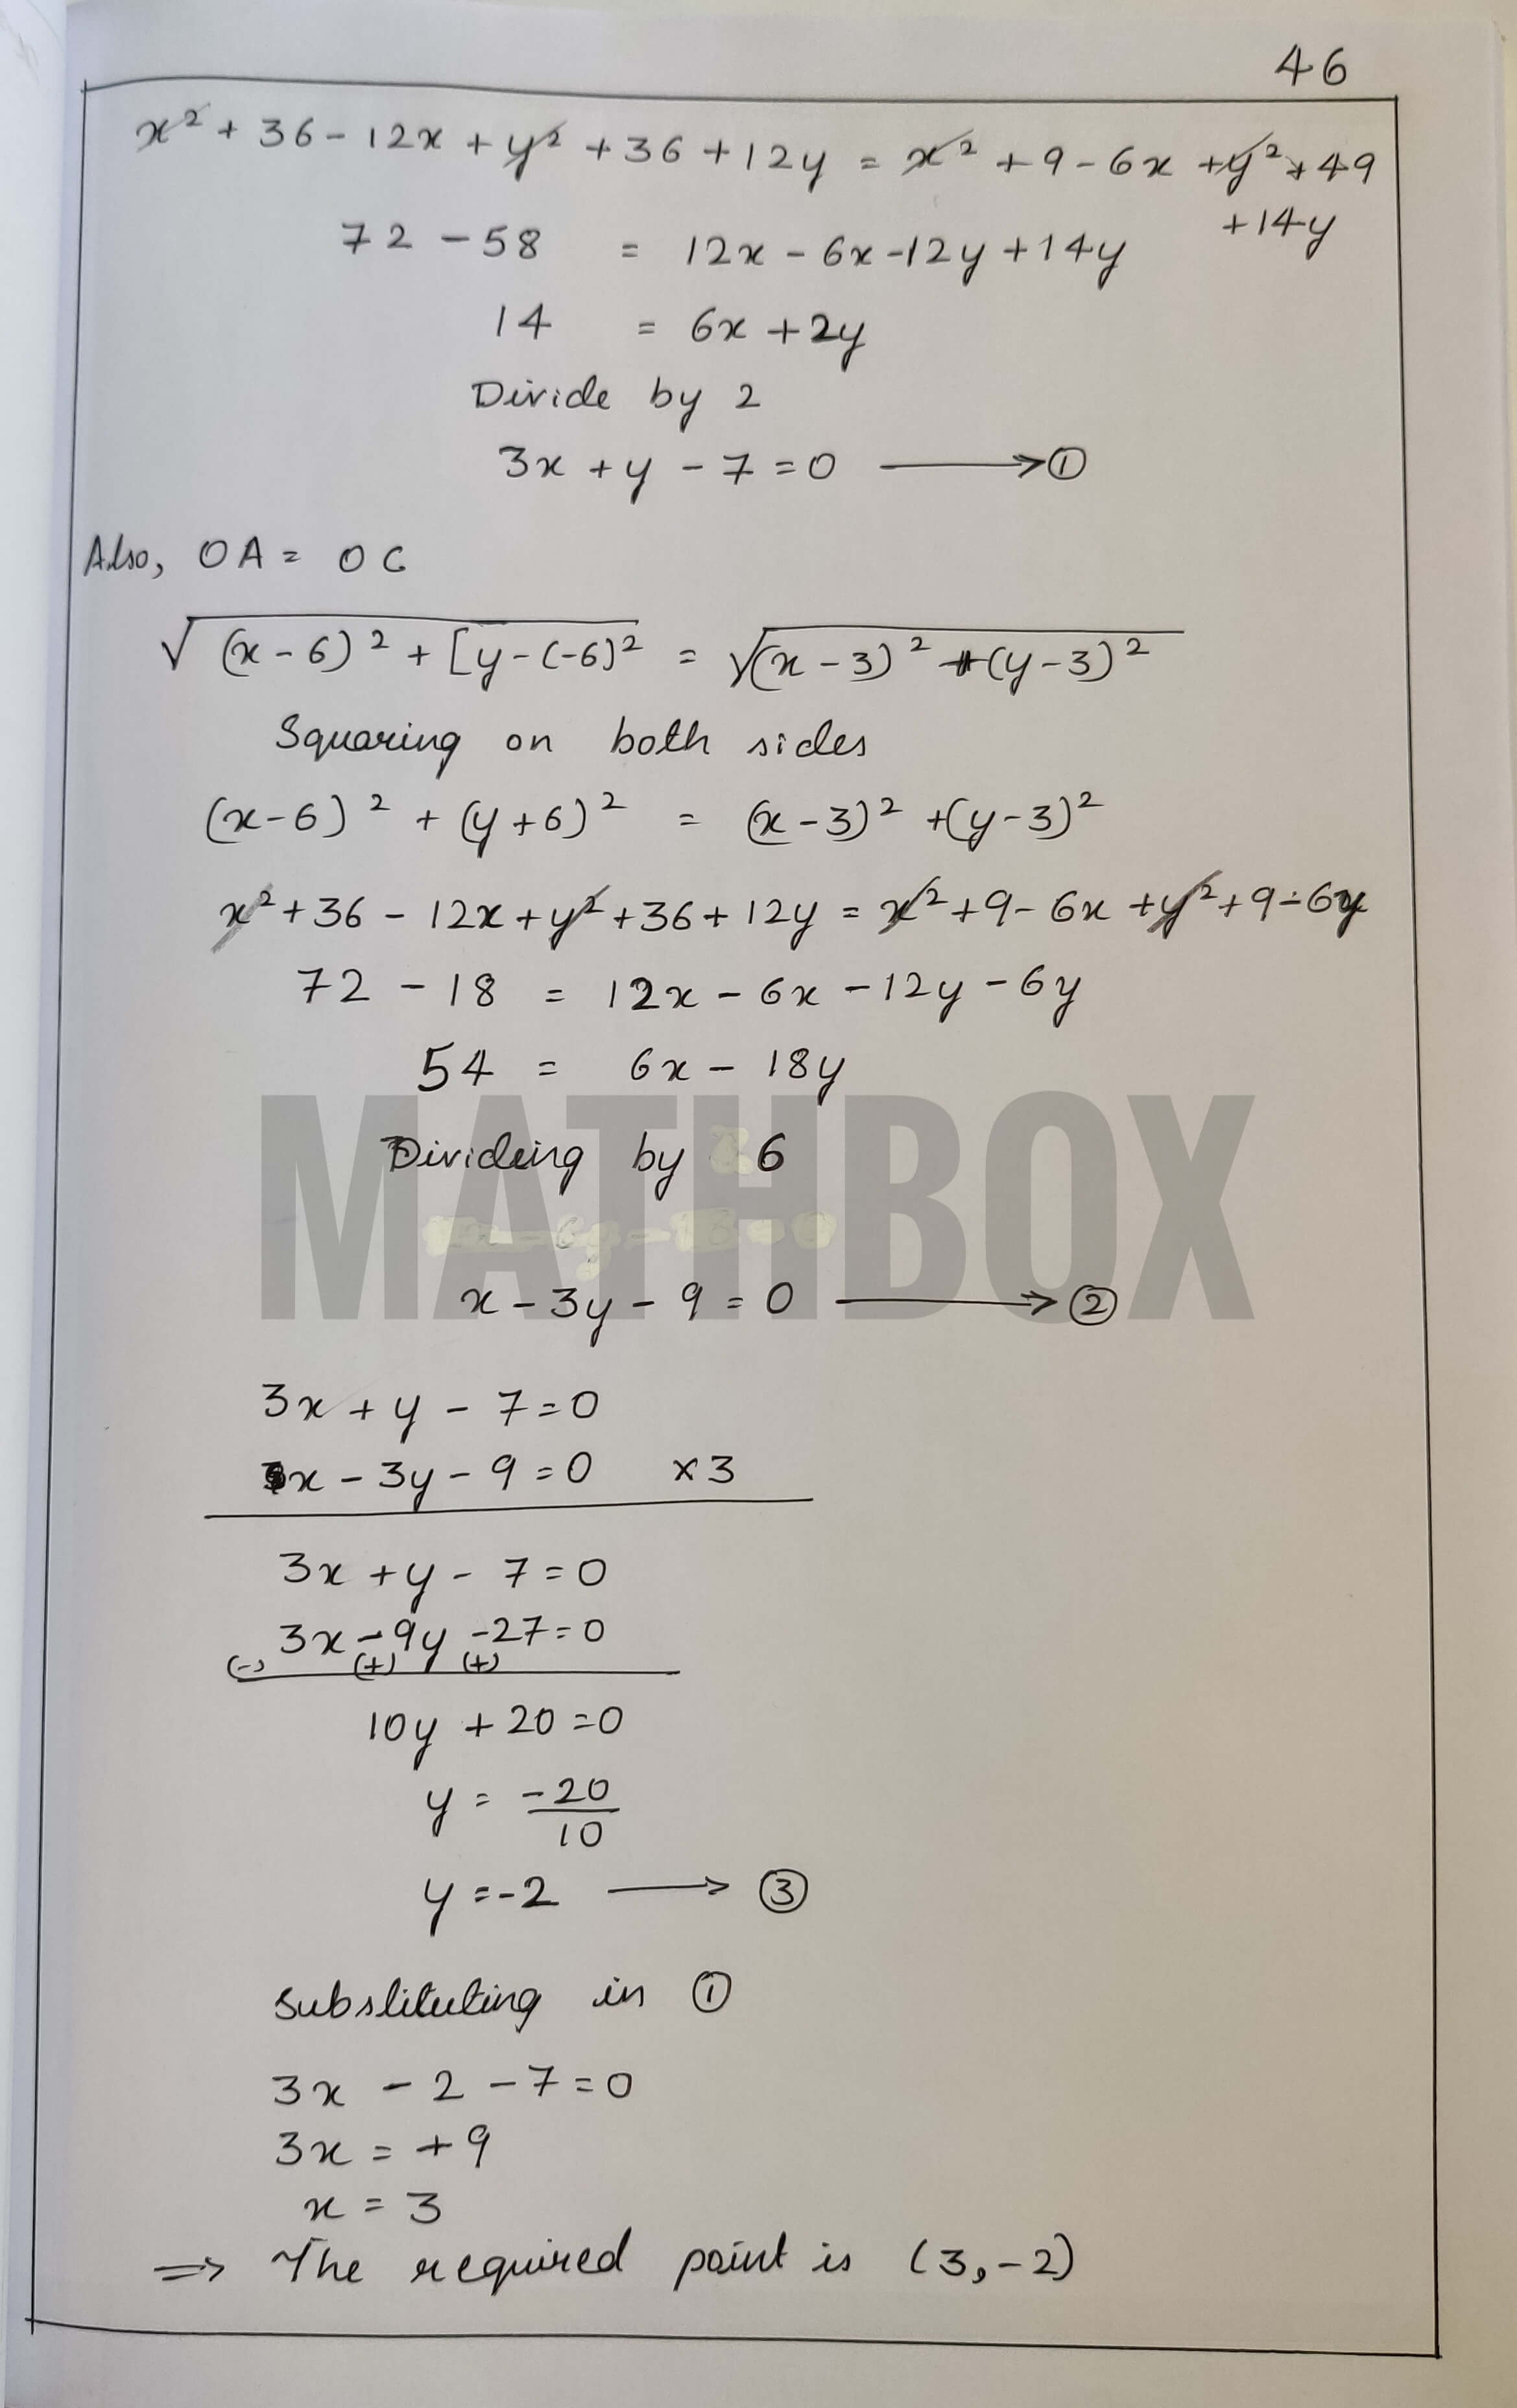 46
x² + 36 - 12x + y² + 36 + 12y = x² + 9 - 6x + y² + 49
+ 14y
72 - 58 = 12x - 6x - 12y + 14y
14 = 6x + 2y
Divide by 2
3x + y - 7 = 0 ⟶ ①
Also, OA = OC
√(x - 6)² + [y - (-6)² = √(x - 3)² + (y - 3)²
Squaring on both sides
(x - 6)² + (y + 6)² = (x - 3)² + (y - 3)²
x² + 36 - 12x + y² + 36 + 12y = x² + 9 - 6x + y² + 9 - 6y
72 - 18 = 12x - 6x - 12y - 6y
54 = 6x - 18y
Dividing by 6
MATHBOX
x - 3y - 9 = 0 ⟶ ②
3x + y - 7 = 0
x - 3y - 9 = 0 ×3
3x + y - 7 = 0
3x - 9y - 27 = 0
(-) (+) (+)
10y + 20 = 0
y = -20
10
y = -2 ⟶ ③
Substituting in ①
3x - 2 - 7 = 0
3x = + 9
x = 3
⇒ The required point is (3, -2)